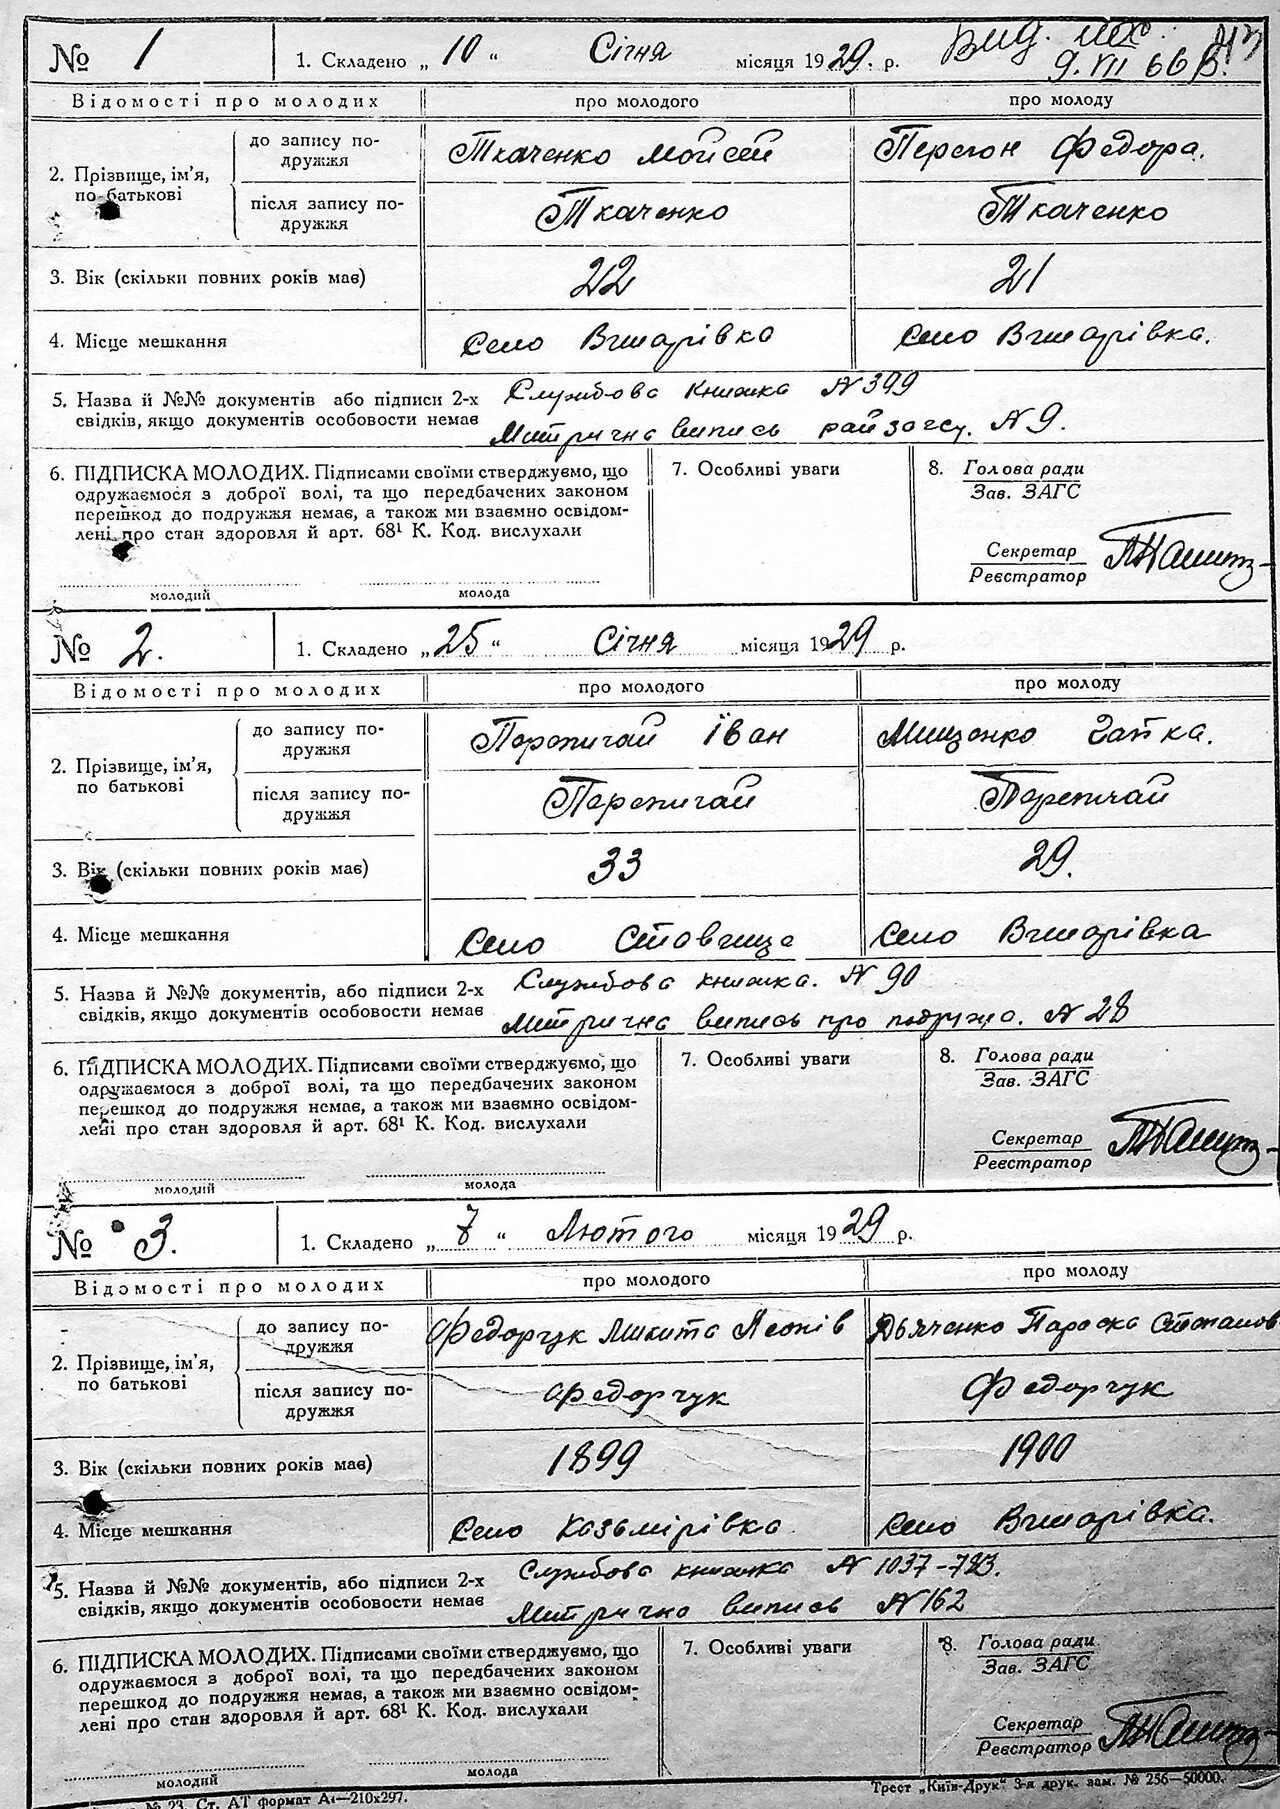 № 1
1. Складено „ 10 “ Січня місяця 1929. р.
9. VII 66 р.
Відомості про молодих
про молодого
про молоду
2. Прізвище, ім'я, по батькові
до запису подружжя
Ткаченко Мойсей
Перегон Федора.
після запису подружжя
Ткаченко
Ткаченко
3. Вік (скільки повних років має)
22
21
4. Місце мешкання
село Вчшарівка
село Вчшарівка.
5. Назва й №№ документів або підписи 2-х
свідків, якщо документів особовости немає
Службова книжка № 399
Митрична випись райзагсу. № 9.
6. ПІДПИСКА МОЛОДИХ. Підписами своїми стверджуємо, що
одружаємося з доброї волі, та що передбачених законом
перешкод до подружжя немає, а також ми взаємно освідом-
лені про стан здоровля й арт. 68¹ К. Код. вислухали
молодий
молода
7. Особливі уваги
8. Голова ради
Зав. ЗАГС
Секретар
Реєстратор
№ 2.
1. Складено „ 25 “ Січня місяця 1929 р.
Відомості про молодих
про молодого
про молоду
2. Прізвище, ім'я,
по батькові
до запису по-
дружжя
Перепичай Іван
Мищенко Гапка.
після запису по-
дружжя
Перепичай
Перепичай
3. Вік (скільки повних років має)
33
29.
4. Місце мешкання
село Ставище
село Вчшарівка
5. Назва й №№ документів, або підписи 2-х
свідків, якщо документів особовости немає
Службова книжка. № 90
Митрична випись про подружа. № 28
6. ПІДПИСКА МОЛОДИХ. Підписами своїми стверджуємо, що
одружаємося з доброї волі, та що передбачених законом
перешкод до подружжя немає, а також ми взаємно освідом-
лені про стан здоровля й арт. 68¹ К. Код. вислухали
молодий
молода
7. Особливі уваги
8. Голова ради
Зав. ЗАГС
Секретар
Реєстратор
№ 3.
1. Складено „ 7 “ Лютого місяця 1929 р.
Відомості про молодих
про молодого
про молоду
2. Прізвище, ім'я,
по батькові
до запису по-
дружжя
Федорчук Микита Леонів
Дьяченко Параска Степанов
після запису по-
дружжя
Федорчук
Федорчук
3. Вік (скільки повних років має)
1899
1900
4. Місце мешкання
село Казьмірівка
село Вчшарівка.
5. Назва й №№ документів, або підписи 2-х
свідків, якщо документів особовости немає
Службова книжка № 1037-783.
Митрична випись № 162
6. ПІДПИСКА МОЛОДИХ. Підписами своїми стверджуємо, що
одружаємося з доброї волі, та що передбачених законом
перешкод до подружжя немає, а також ми взаємно освідом-
лені про стан здоровля й арт. 68¹ К. Код. вислухали
молодий
молода
7. Особливі уваги
8. Голова ради
Зав. ЗАГС
Секретар
Реєстратор
№ 23. Ст. АТ формат А₄—210x297.
Трест „Київ-Друк“ 3-я друк. зам. № 256—50000.